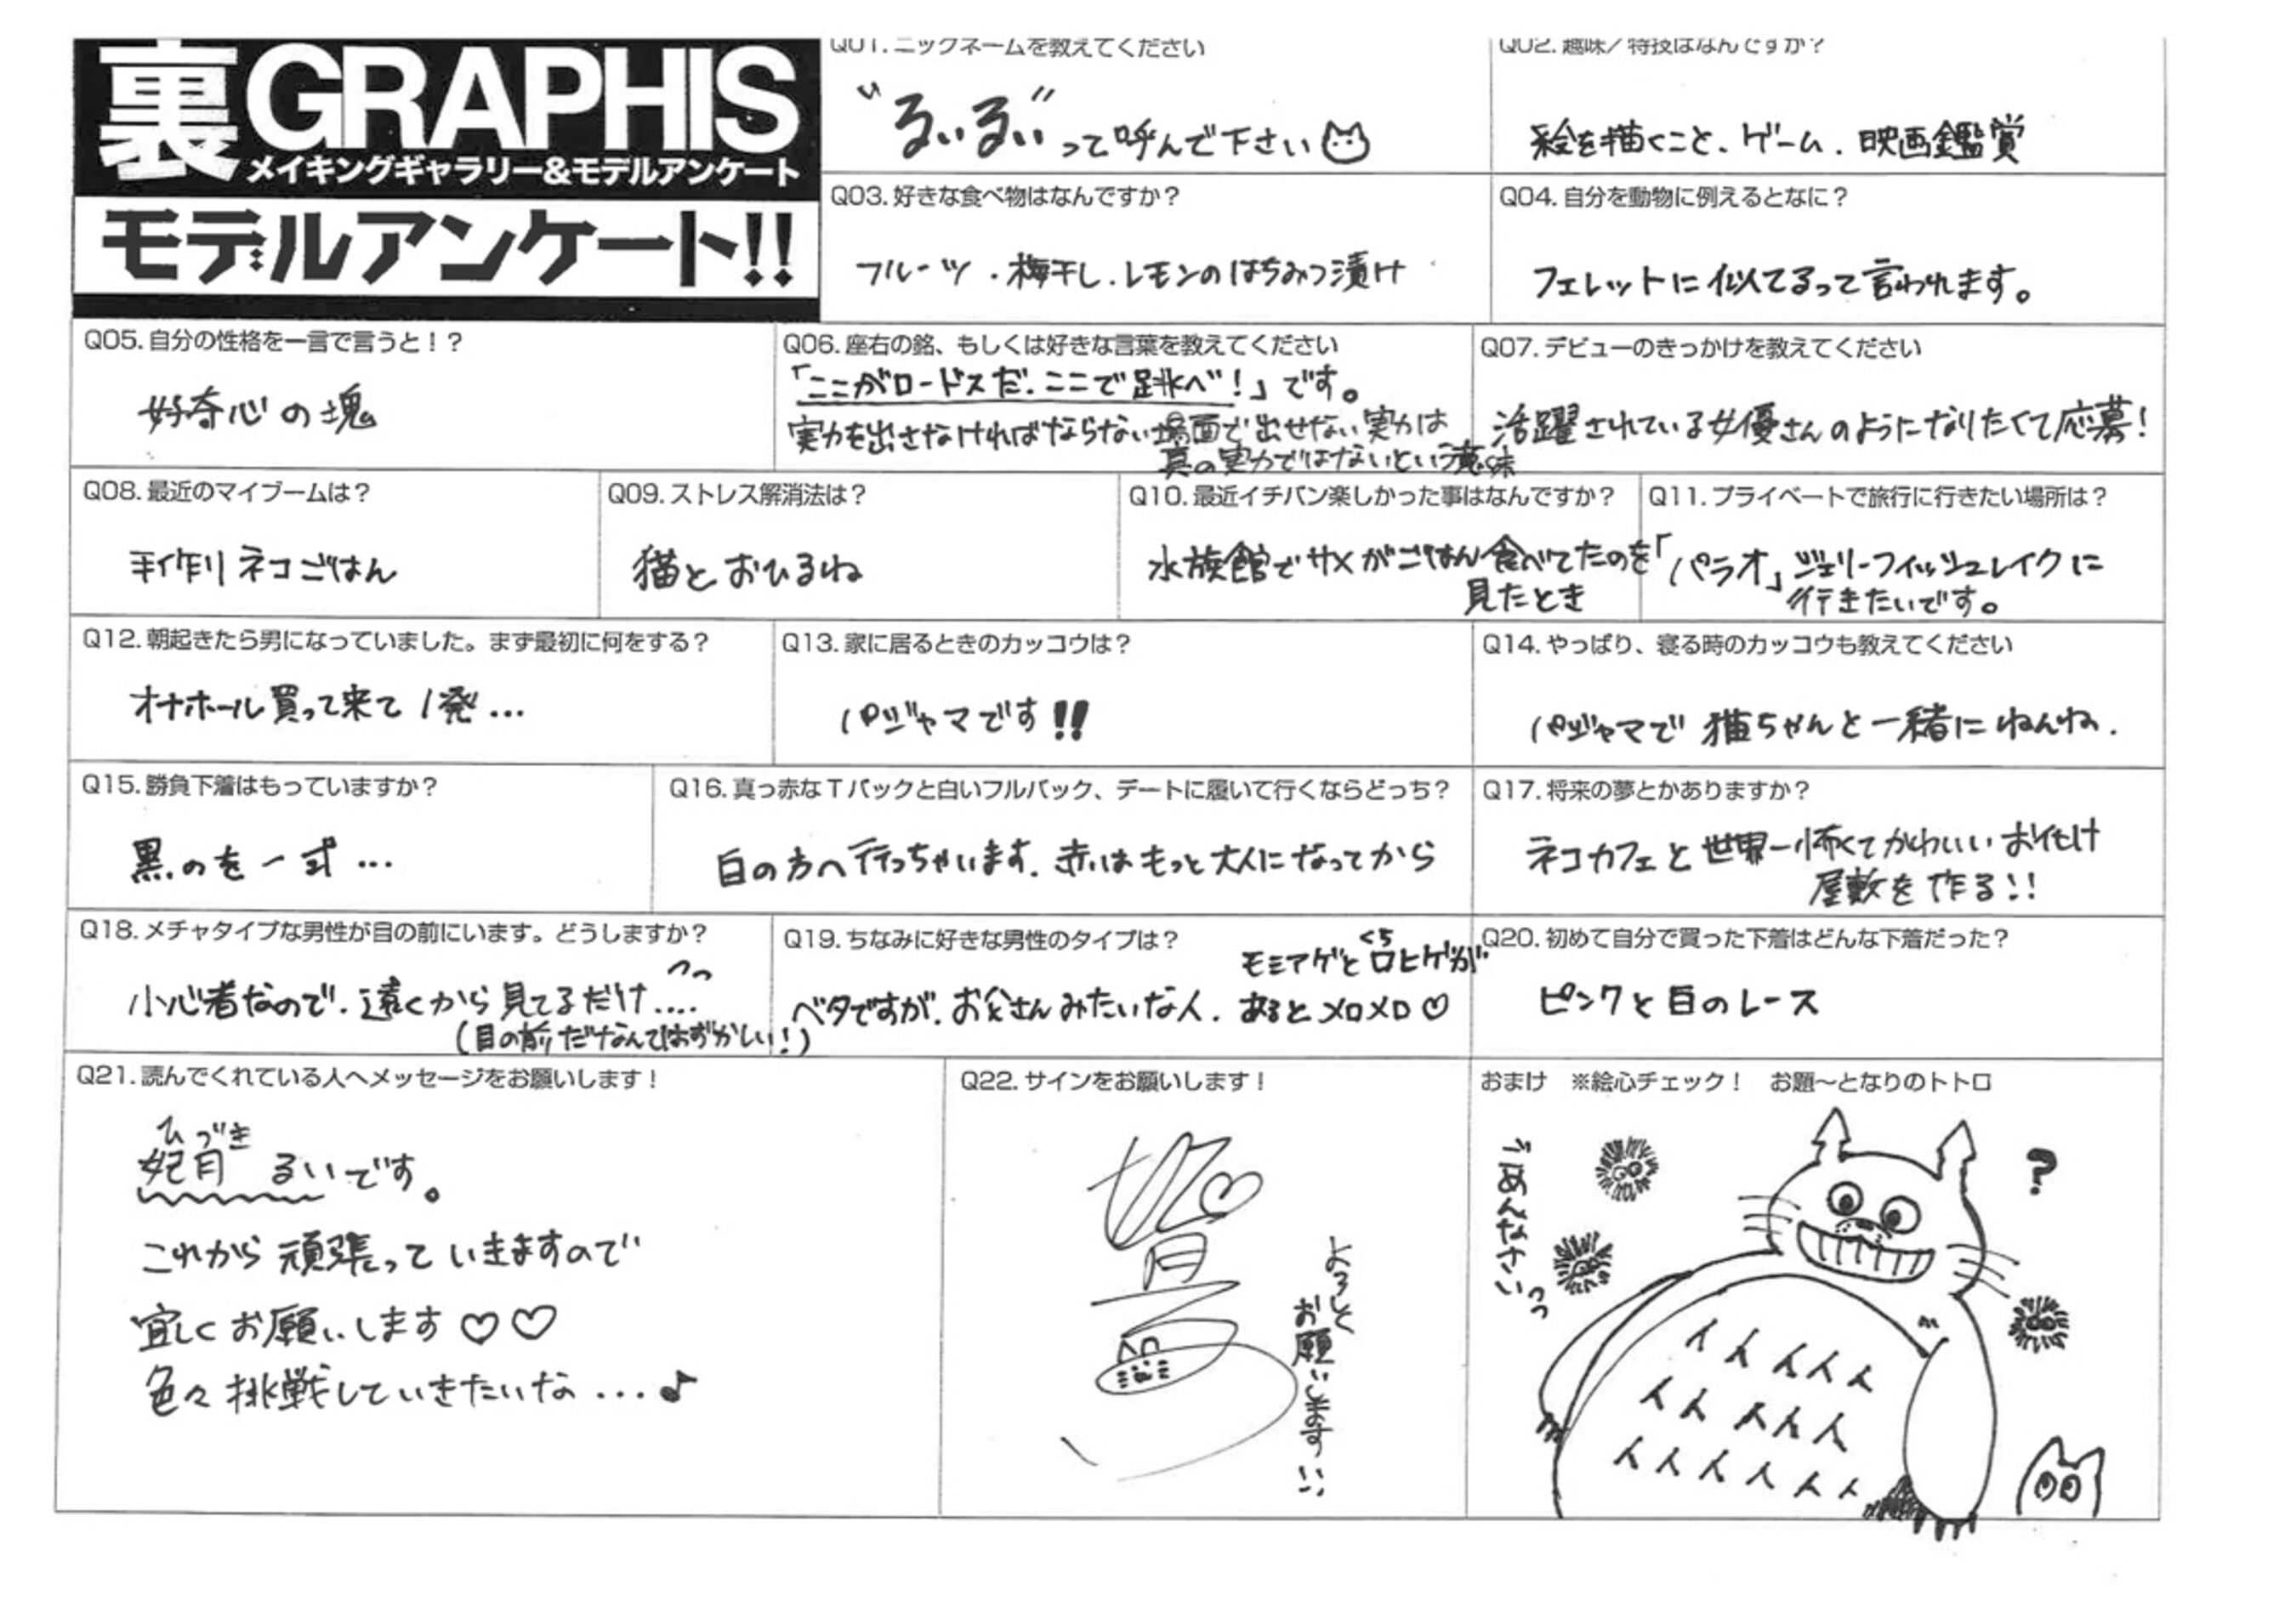 裏GRAPHIS
メイキングギャラリー&モデルアンケート
モデルアンケート!!
Q01.ニックネームを教えてください
"るいるい"って呼んで下さい
Q02.趣味/特技はなんですか?
絵を描くこと、ゲーム、映画鑑賞
Q03.好きな食べ物はなんですか?
フルーツ・梅干し、レモンのはちみつ漬け
Q04.自分を動物に例えるとなに?
フェレットに似てるって言われます。
Q05.自分の性格を一言で言うと!?
好奇心の塊
Q06.座右の銘、もしくは好きな言葉を教えてください
「ここがロードスだ、ここで跳べ!」です。
実力を出さなければならない場面で出せない実力は
真の実力ではないという意味
Q07.デビューのきっかけを教えてください
活躍されている女優さんのようになりたくて応募!
Q08.最近のマイブームは?
手作りネコごはん
Q09.ストレス解消法は?
猫とおひるね
Q10.最近イチバン楽しかった事はなんですか?
水族館でサメがごはん食べてたのを
見たとき
Q11.プライベートで旅行に行きたい場所は?
「パラオ」ジェリーフィッシュレイクに
行きたいです。
Q12.朝起きたら男になっていました。まず最初に何をする?
オナホール買って来て1発...
Q13.家に居るときのカッコウは?
パジャマです!!
Q14.やっぱり、寝る時のカッコウも教えてください
パジャマで猫ちゃんと一緒にねんね.
Q15.勝負下着はもっていますか?
黒のを一式...
Q16.真っ赤なTバックと白いフルバック、デートに履いて行くならどっち?
白の方へ行っちゃいます.赤はもっと大人になってから
Q17.将来の夢とかありますか?
ネコカフェと世界一怖くてかわいいお化け
屋敷を作る!!
Q18.メチャタイプな男性が目の前にいます。どうしますか?
小心者なので、遠くから見てるだけ....っっ
(目の前だなんてはずかしい!)
Q19.ちなみに好きな男性のタイプは?
ベタですが、お父さんみたいな人.
くち
モミアゲと口ヒゲが
あるとメロメロ♡
Q20.初めて自分で買った下着はどんな下着だった?
ピンクと白のレース
Q21.読んでくれている人へメッセージをお願いします!
ひづき
妃月 るいです。
これから頑張っていきますので
宜しくお願いします♡♡
色々挑戦していきたいな...♪
Q22.サインをお願いします!
よろしく
お願いします!!
おまけ ※絵心チェック! お題~となりのトトロ
ごめんなさいっっ
?